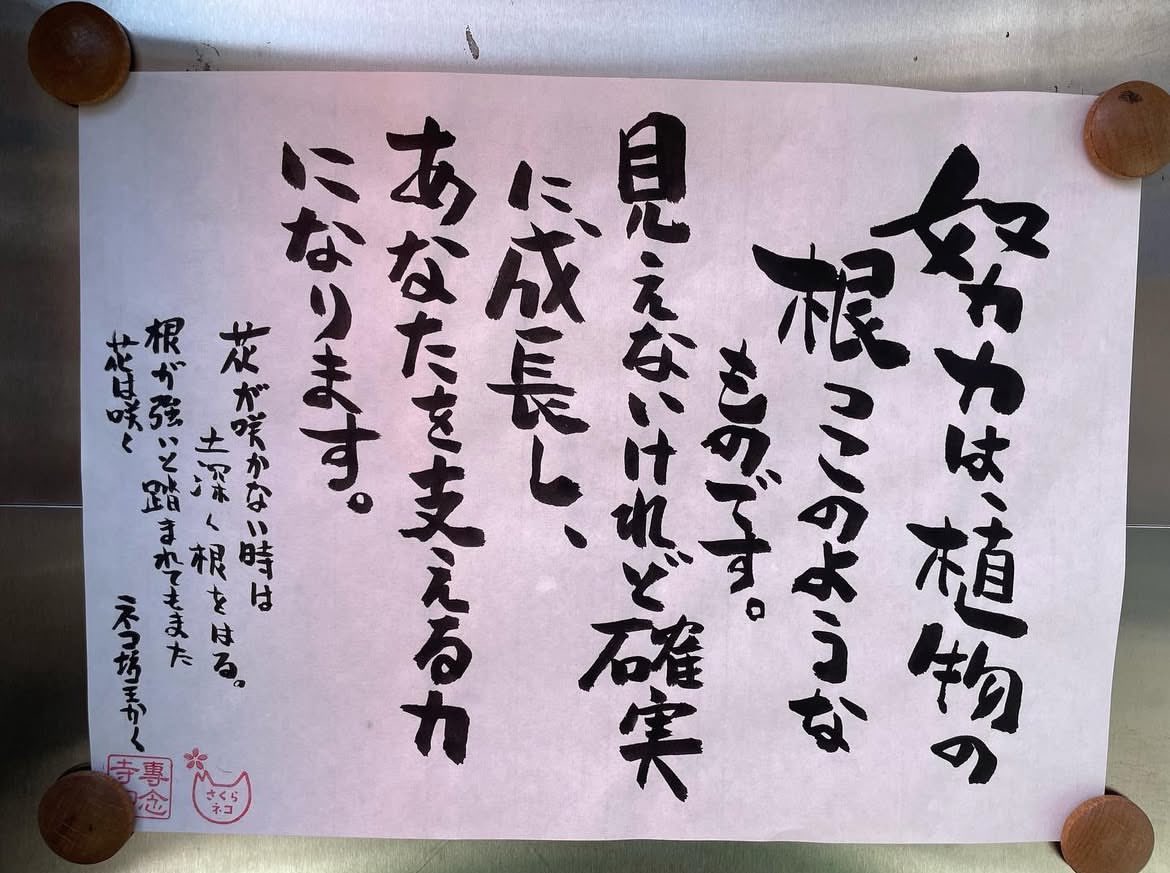 努力は、植物の
根っこのような
ものです。
見えないけれど確実
に、成長し、
あなたを支える力
になります。
花が咲かない時は
土深く根をはる。
根が強いと踏まれてもまた
花は咲く
ネコ坊主かく
さくら
ネコ
專念
寺